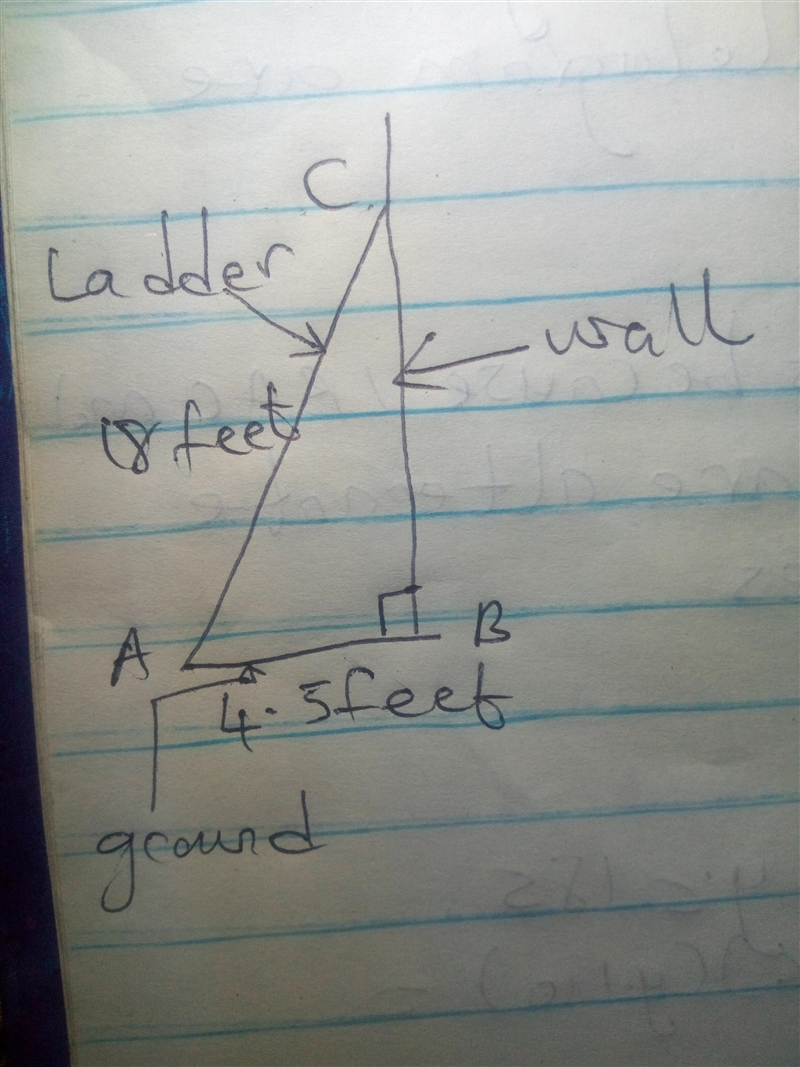 C
Ladder
wall
18 feet
A
B
4.5feet
ground